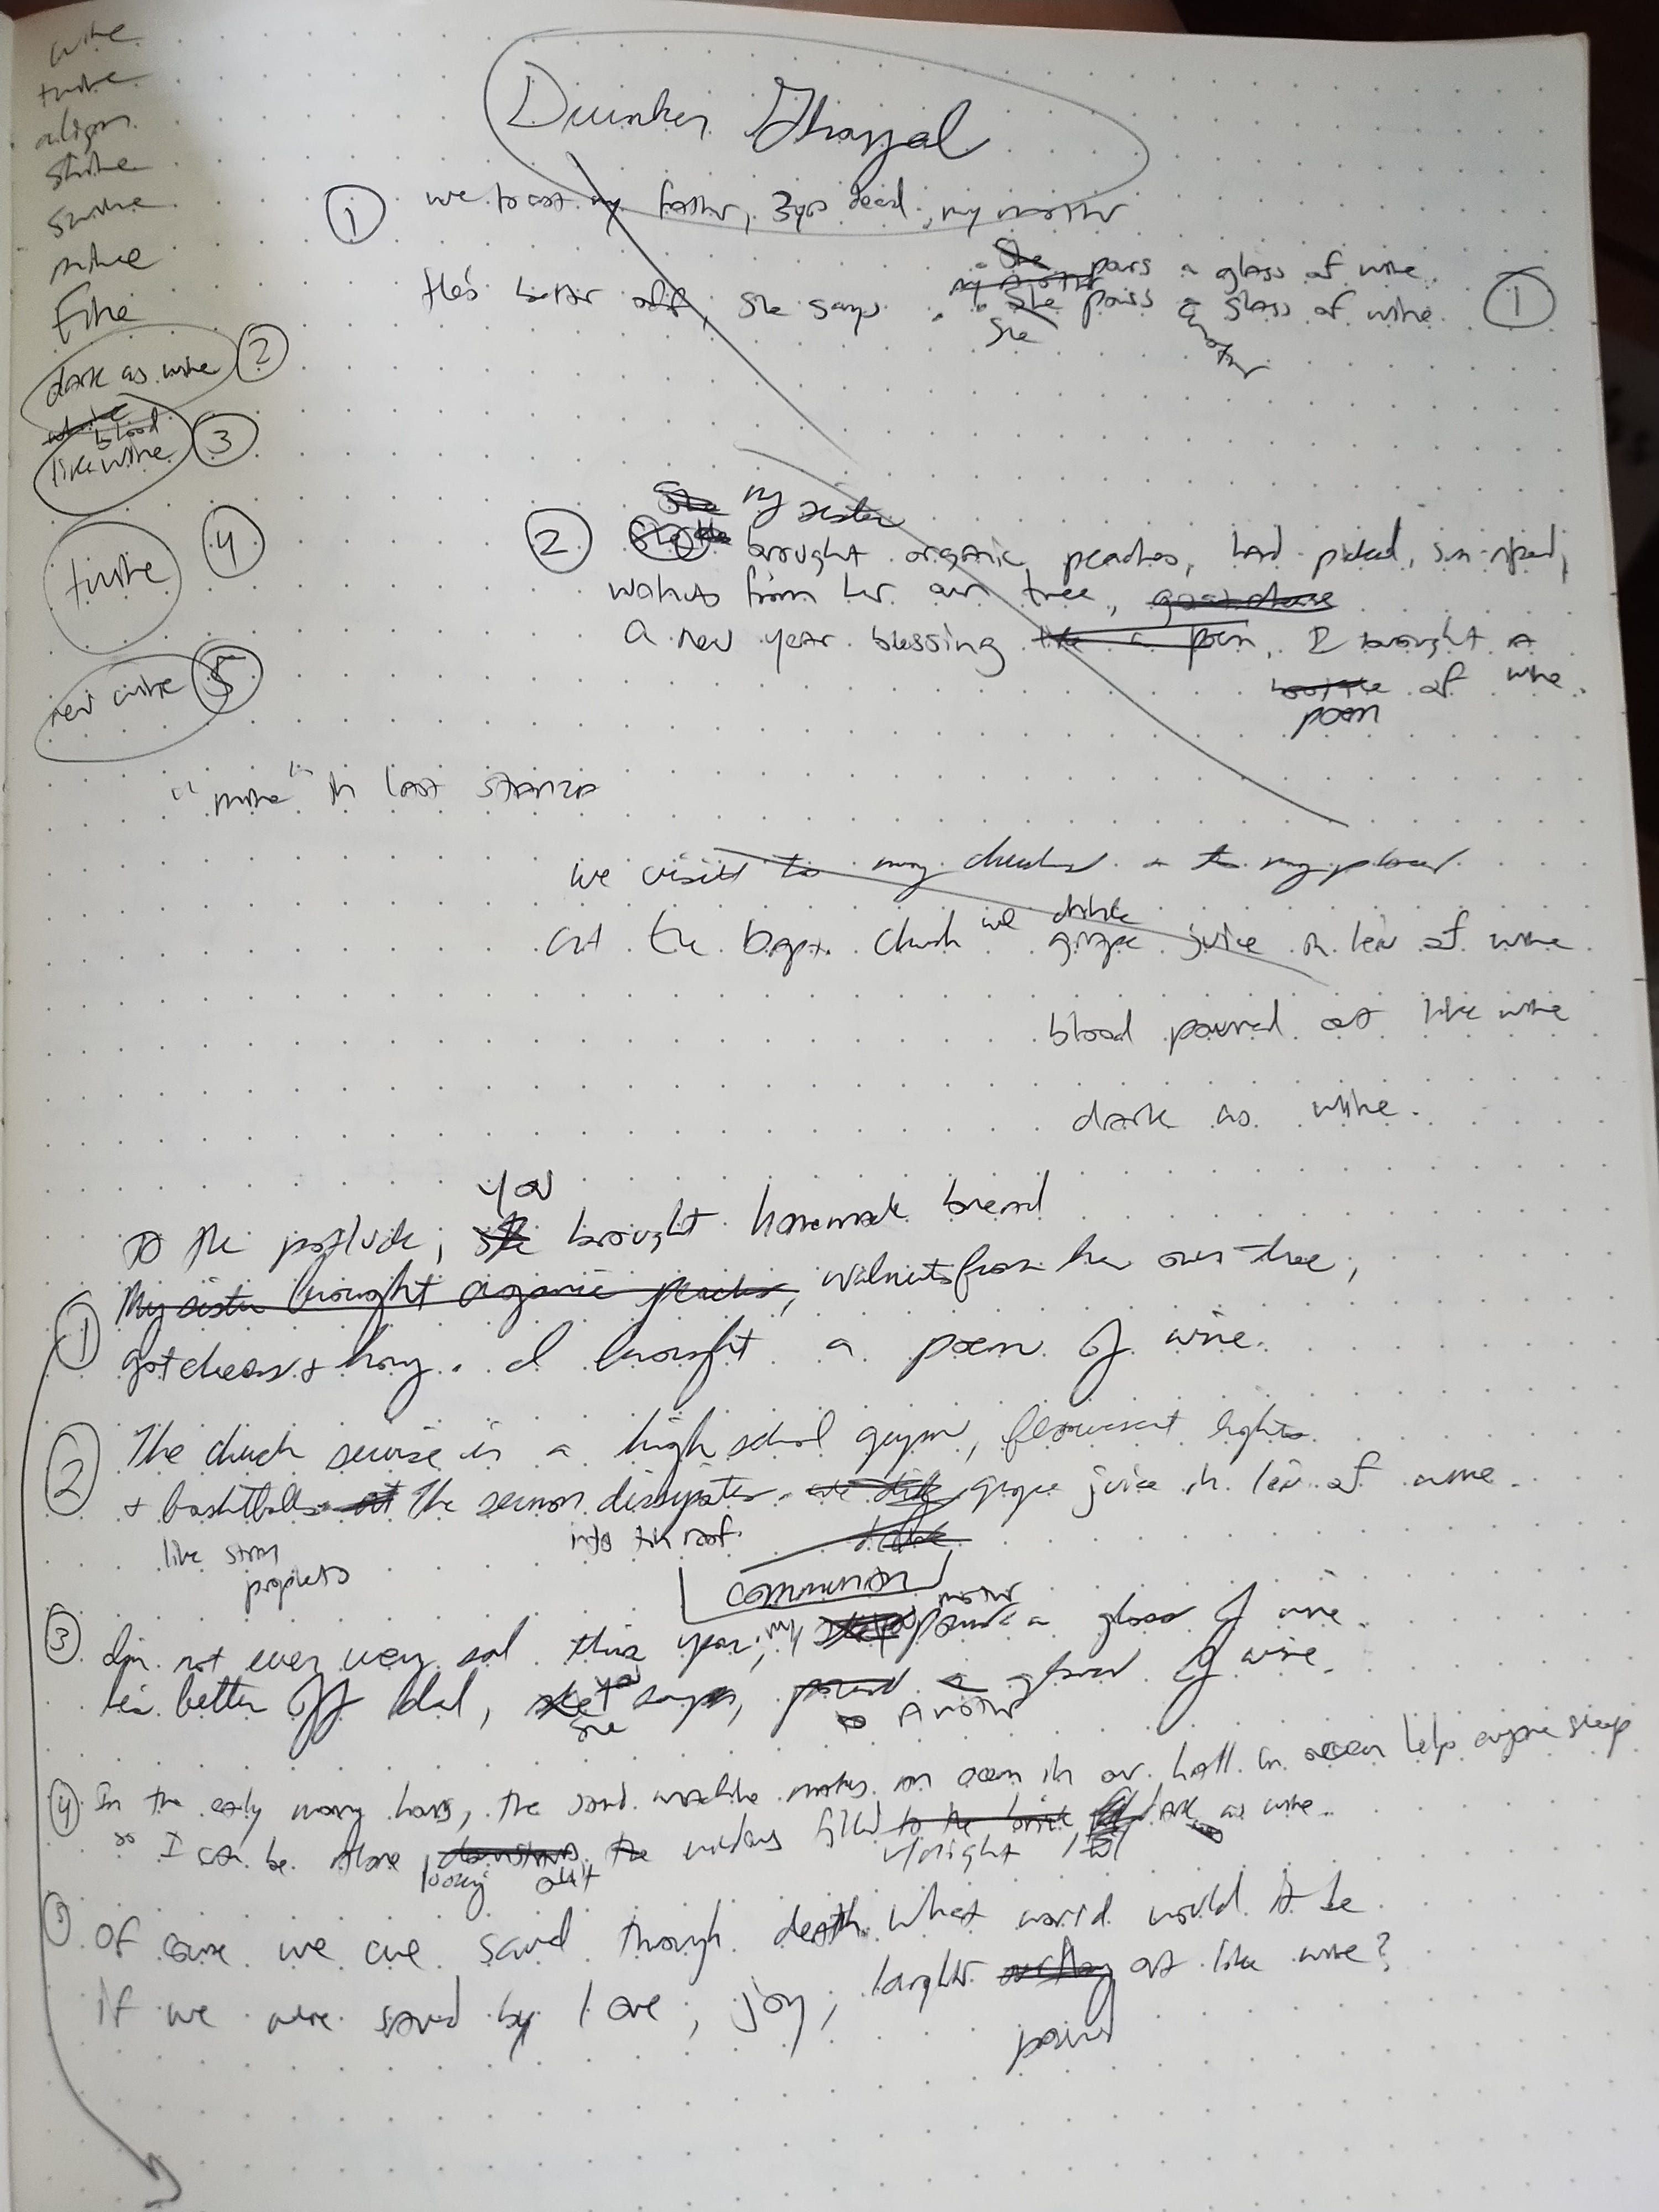 wine
twine
align
shine
swine
mine
fine
dark as wine 2
blood
like wine 3
twine 4
new wine 5
"mine" in last stanza
Drunken Ghazal
1 we toast my father, 3 yrs dead, my mother
She pours a glass of wine.
He's better off, she says. She pours a glass of wine. 1
She another
She my sister
2 brought organic peaches, hand picked, sun-riped,
walnuts from her own tree, goat cheese
a new year blessing like a poem, I brought a
bottle of wine.
poem
we visit to my church + to my
at the Bapt. church we drink grape juice in leiu of wine
blood poured out like wine
dark as wine.
you
To the potluck, she brought homemade bread
1 My sister brought organic peaches, walnuts from her own tree,
goat cheese + honey. I brought a poem of wine.
2 The church service is in a high school gym, flourescent lights
+ basketballs the sermon dissipates we drink grape juice in leiu of wine.
like stray into tin roof. take
prophets
communion
mother
3 I'm not even very sad this year, my pours a glass of wine.
he's better off dead, she says, poured a glass of wine.
you
she another
4 In the early morning hours, the sound machine makes an ocean in our hall. An ocean help everyone sleep
so I can be alone, downstairs the windows filled to the brink dark as wine.
looking out w/night
5 Of course we are saved through death. What world would it be
if we were saved by love, joy, laughter out like wine?
poured